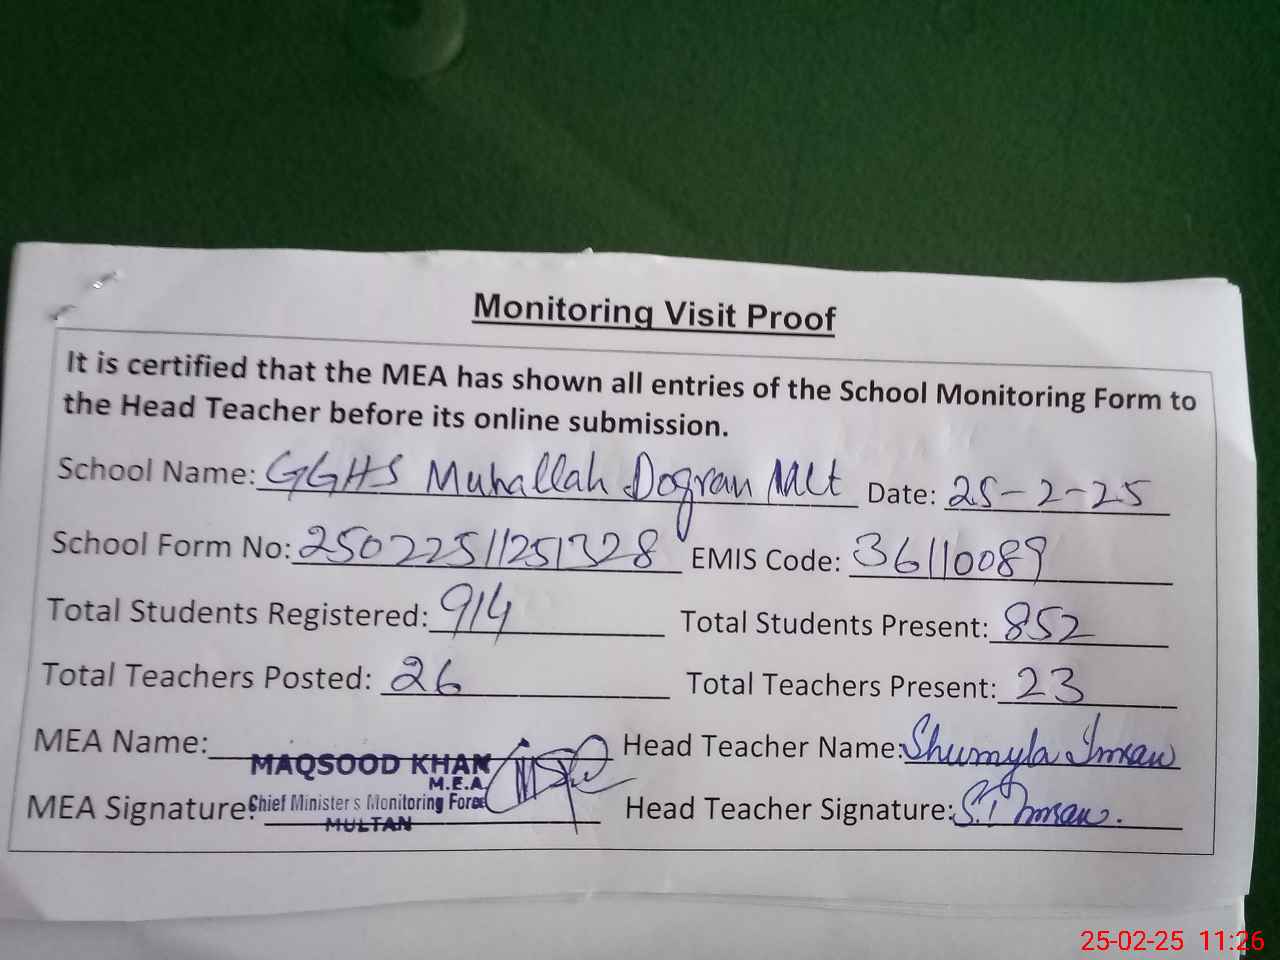 Monitoring Visit Proof
It is certified that the MEA has shown all entries of the School Monitoring Form to
the Head Teacher before its online submission.
School Name: GGHS Muhallah Dogran Mlt Date: 25-2-25
School Form No: 25022511251328 EMIS Code: 36110089
Total Students Registered: 914 Total Students Present: 852
Total Teachers Posted: 26 Total Teachers Present: 23
MEA Name: Head Teacher Name: Shumyla Imran
MAQSOOD KHAN
M.E.A
MEA Signature: Chief Minister's Monitoring Force Head Teacher Signature: S. Imran.
MULTAN
25-02-25 11:26